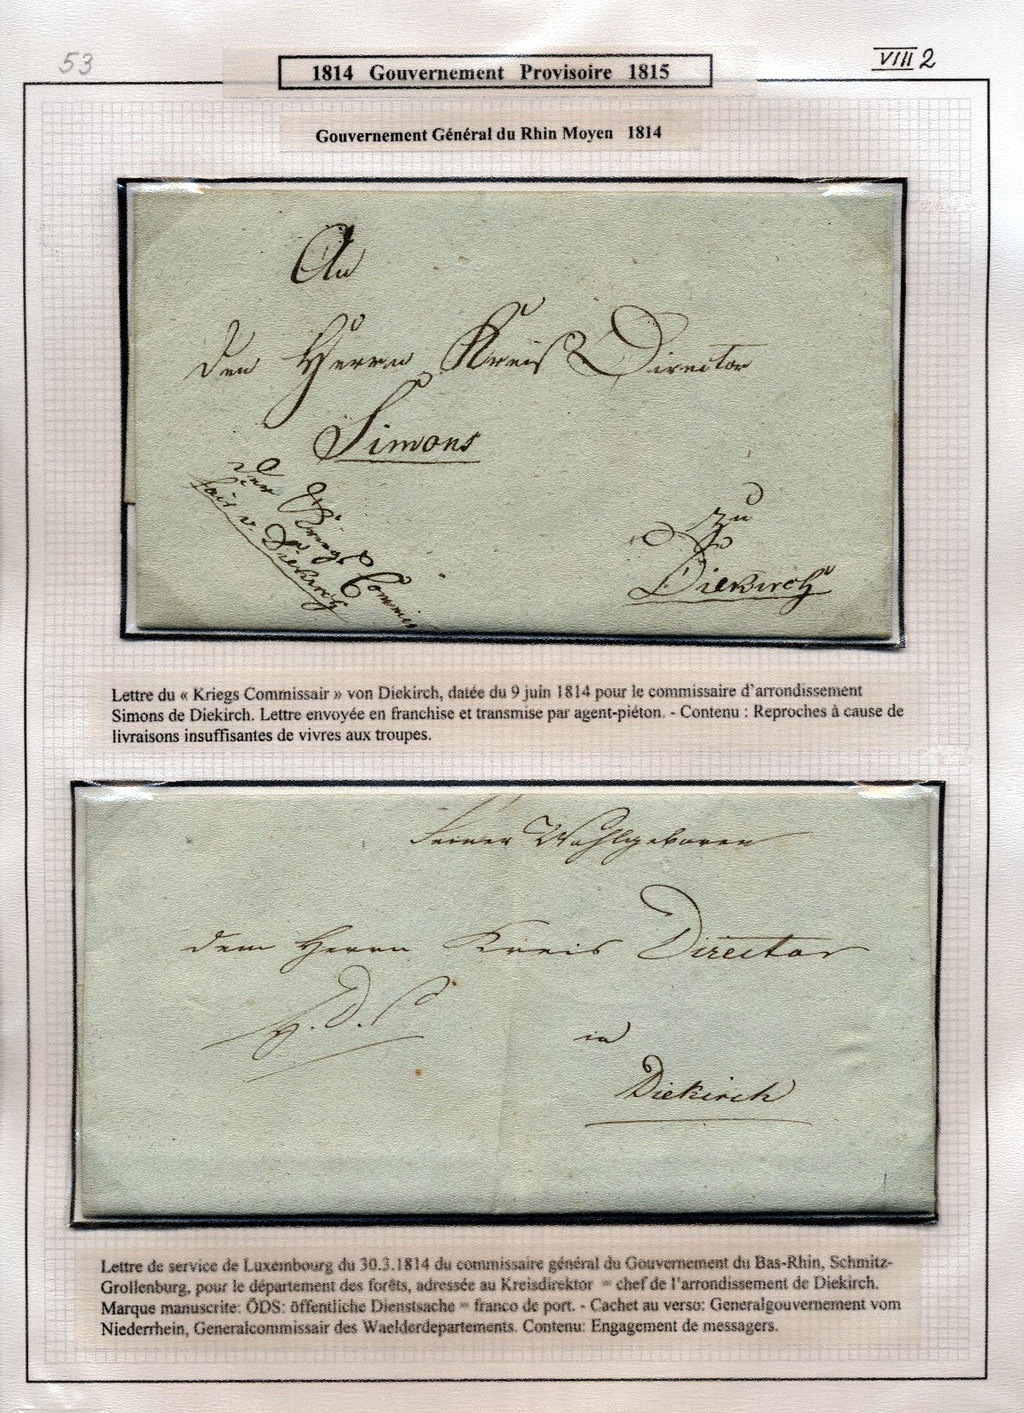 53
VIII 2
1814 Gouvernement Provisoire 1815
Gouvernement Général du Rhin Moyen 1814
An
den Herrn Kreis Director
Simons
Der Kriegs Commis
fair v. Diekirch
zu
Diekirch
Lettre du « Kriegs Commissair » von Diekirch, datée du 9 juin 1814 pour le commissaire d'arrondissement
Simons de Diekirch. Lettre envoyée en franchise et transmise par agent-piéton. - Contenu : Reproches à cause de
livraisons insuffisantes de vivres aux troupes.
Seiner Wohlgeboren
dem Herrn Kreis Director
ö. D. S
in
Diekirch
Lettre de service de Luxembourg du 30.3.1814 du commissaire général du Gouvernement du Bas-Rhin, Schmitz-
Grollenburg, pour le département des forêts, adressée au Kreisdirektor = chef de l'arrondissement de Diekirch.
Marque manuscrite: ÖDS: öffentliche Dienstsache = franco de port. - Cachet au verso: Generalgouvernement vom
Niederrhein, Generalcommissair des Waelderdepartements. Contenu: Engagement de messagers.